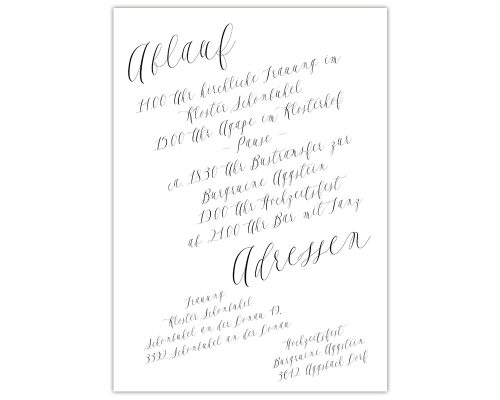 Ablauf
14.00 Uhr kirchliche Trauung im
Kloster Schönbühel
15.00 Uhr Agape im Klosterhof
– Pause –
ca. 18.30 Uhr Bustransfer zur
Burgruine Aggstein
19.00 Uhr Hochzeitsfest
ab 24.00 Uhr Bar mit Tanz
Adressen
Trauung
Kloster Schönbühel
Schönbühel an der Donau
3392 Schönbühel an der Donau
Hochzeitsfest
Burgruine Aggstein
3642 Aggsbach Dorf